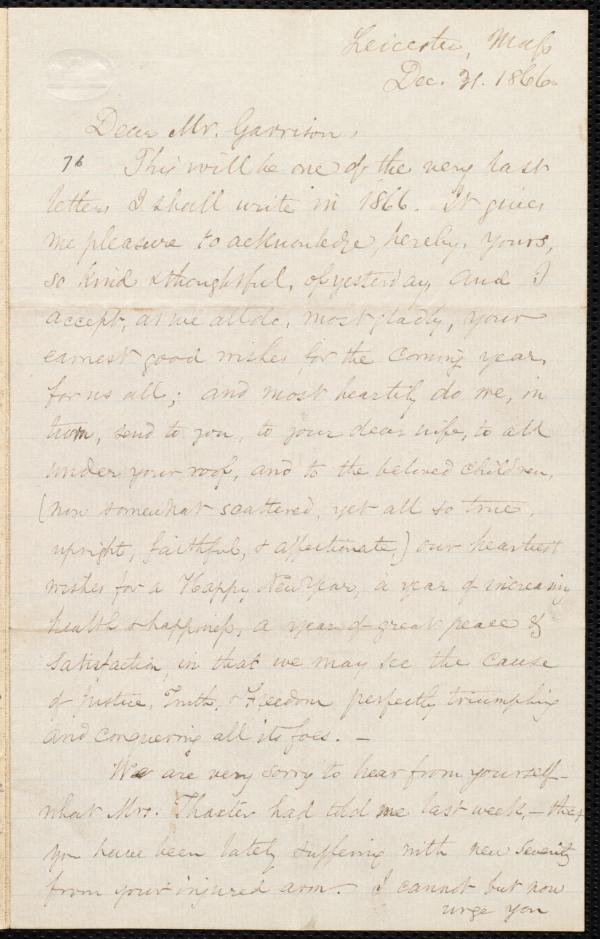 Leicester, Mass
Dec. 31. 1866.
Dear Mr. Garrison,
76 This will be one of the very last
letters I shall write in 1866. It gives
me pleasure to acknowledge, hereby, yours,
so kind & thoughtful, of yesterday, and I
accept, as we all do, most gladly, your
earnest good wishes for the coming year,
for us all; and most heartily do we, in
turn, send to you, to your dear wife, to all
under your roof, and to the beloved children,
(now somewhat scattered, yet all so true,
upright, faithful, & affectionate,) our heartiest
wishes for a Happy New Year, a year of increasing
health & happiness, a year of great peace &
satisfaction, in that we may see the cause
of Justice, Truth, & Freedom perfectly triumphing
and conquering all its foes. —
We are very sorry to hear from yourself
what Mrs. Thaxter had told me last week, — that
you have been lately suffering with new severity
from your injured arm. I cannot but now
urge you